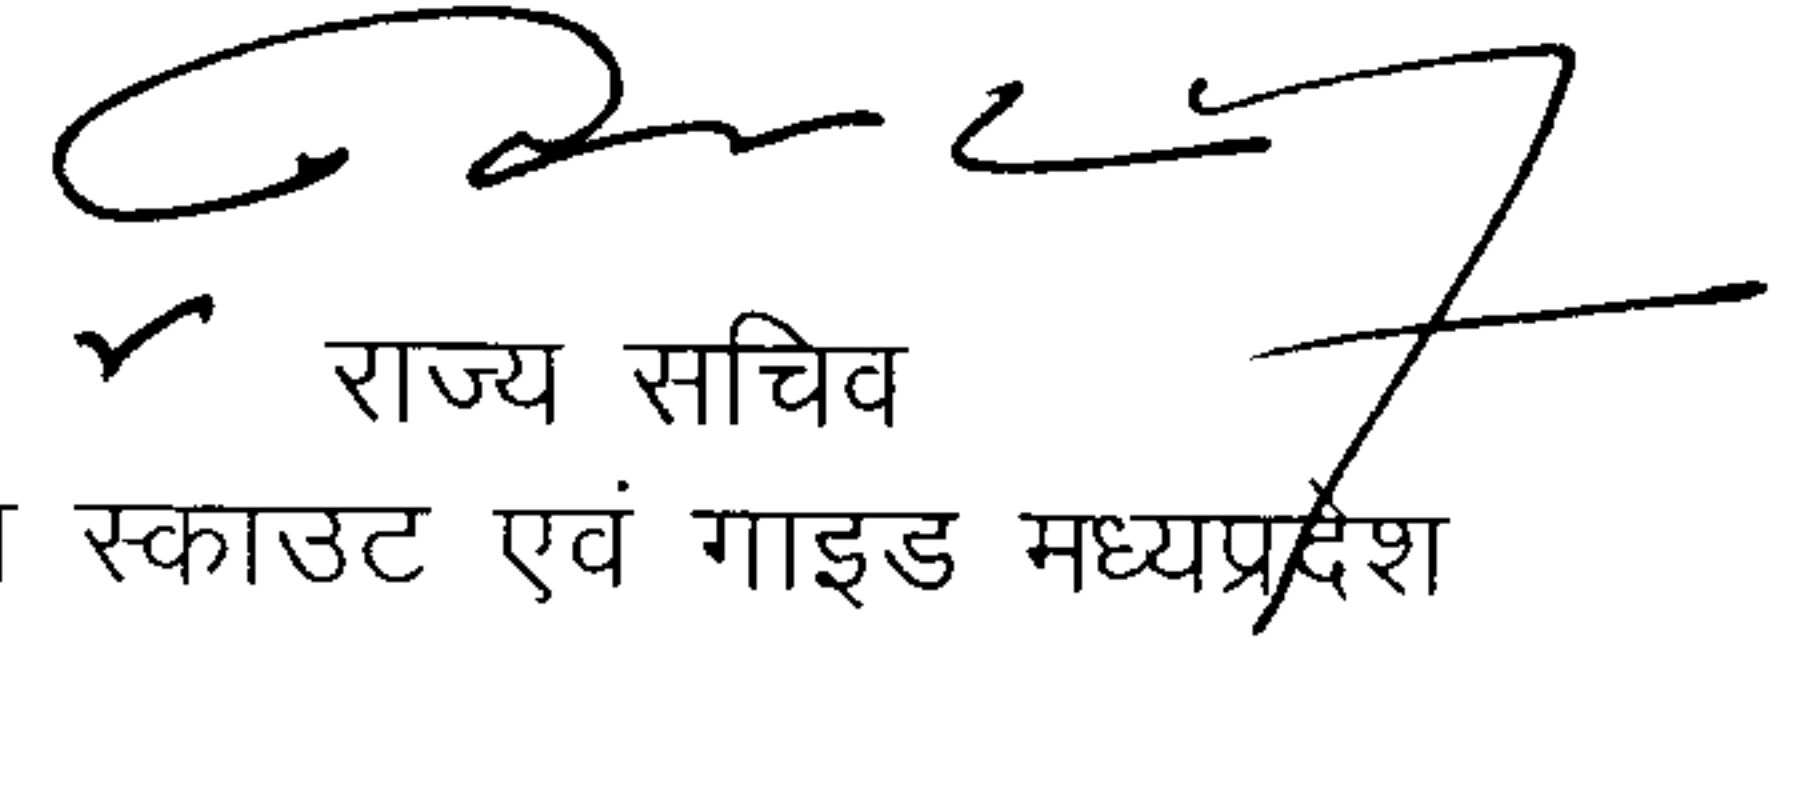 राज्य सचिव
स्काउट एवं गाइड मध्यप्रदेश